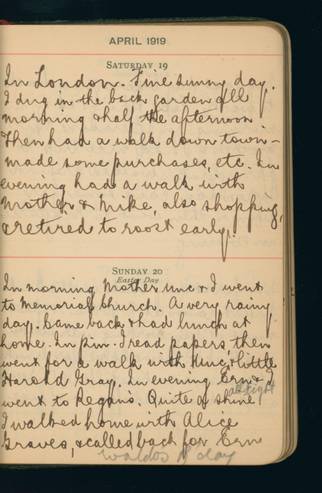 APRIL 1919
SATURDAY 19
In London. Fine sunny day.
I dug in the back garden all
morning & half the afternoon
Then had a walk down town –
made some purchases, etc. In
evening had a walk with
Mother & Mike, also shopping,
& retired to roost early.
SUNDAY 20
Easter Day
In morning Mother Unc & I went
to Memorial Church. A very rainy
day. Came back & had lunch at
home. In p.m. I read papers then
went for a walk with Unc, & little
Harold Gray. In evening Ern & I
went to Regans. Quite a shine
all right
I walked home with Alice
Graves, & called back for Ern